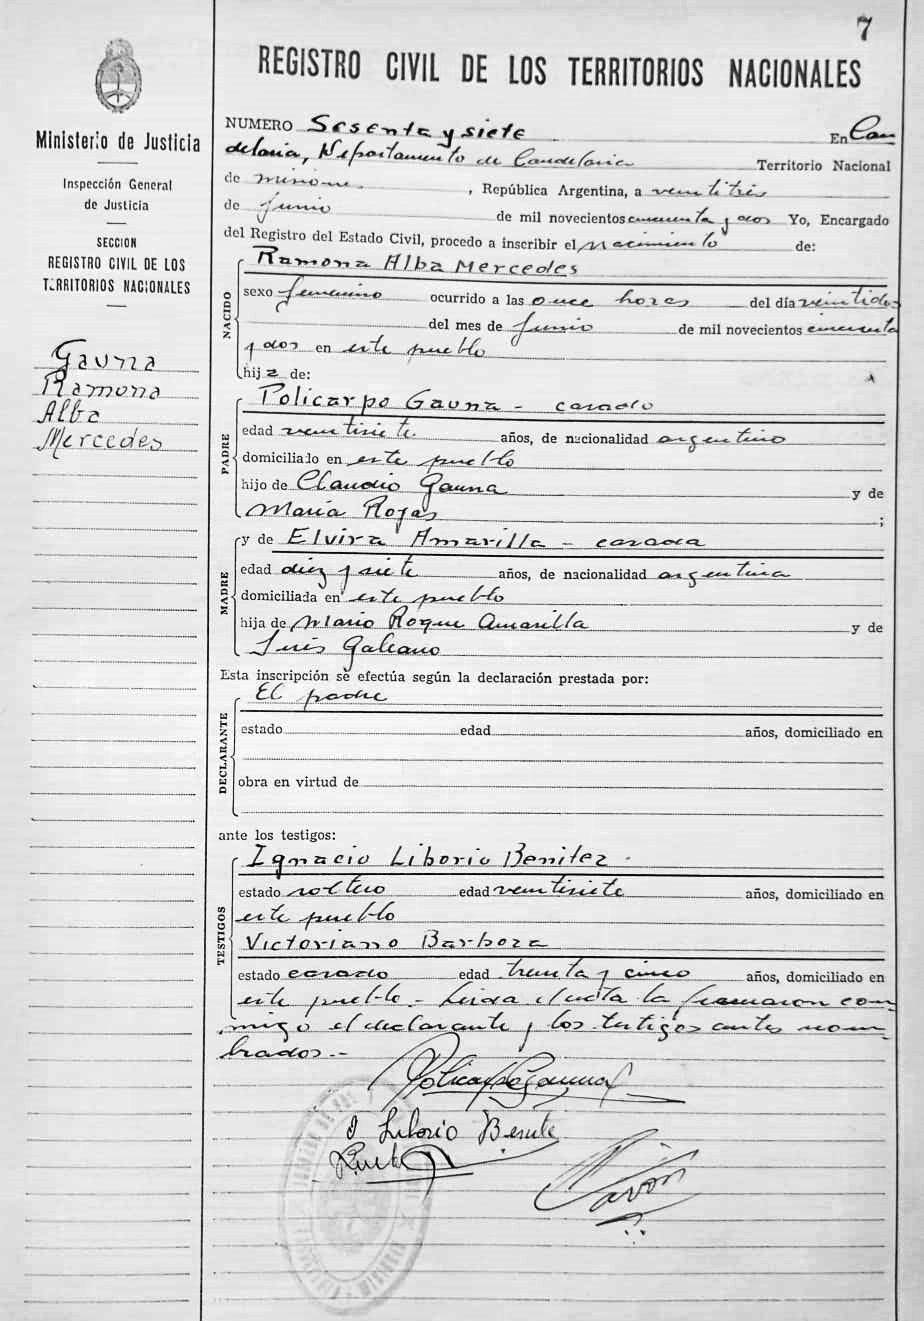 7
REGISTRO CIVIL DE LOS TERRITORIOS NACIONALES
Ministerio de Justicia
Inspección General
de Justicia
SECCION
REGISTRO CIVIL DE LOS
TERRITORIOS NACIONALES
Gauna
Ramona
Alba
Mercedes
NUMERO Sesenta y siete En Can
delaria, Departamento de Candelaria Territorio Nacional
de misiones, República Argentina, a veintitrés
de junio de mil novecientos cincuenta y dos Yo, Encargado
del Registro del Estado Civil, procedo a inscribir el nacimiento de:
NACIDO
Ramona Alba Mercedes
sexo femenino ocurrido a las once horas del día veintidos
del mes de junio de mil novecientos cincuenta
y dos en este pueblo
hija de:
PADRE
Policarpo Gauna - casado
edad veintisiete años, de nacionalidad argentino
domiciliado en este pueblo
hijo de Claudio Gauna y de
María Rojas ;
MADRE
y de Elvira Amarilla - casada
edad diez y siete años, de nacionalidad argentina
domiciliada en este pueblo
hija de Mario Roque Amarilla y de
Galeano
Esta inscripción se efectúa según la declaración prestada por:
DECLARANTE
El padre
estado edad años, domiciliado en
obra en virtud de
ante los testigos:
TESTIGOS
Ignacio Liborio Benitez.
estado soltero edad veintisiete años, domiciliado en
este pueblo
Victoriano Barboza
estado casado edad treinta y cinco años, domiciliado en
este pueblo - Leida el acta la firmaron con-
migo el declarante y los testigos antes nom-
brados.-
Policarpo Gauna
I Liborio Benite